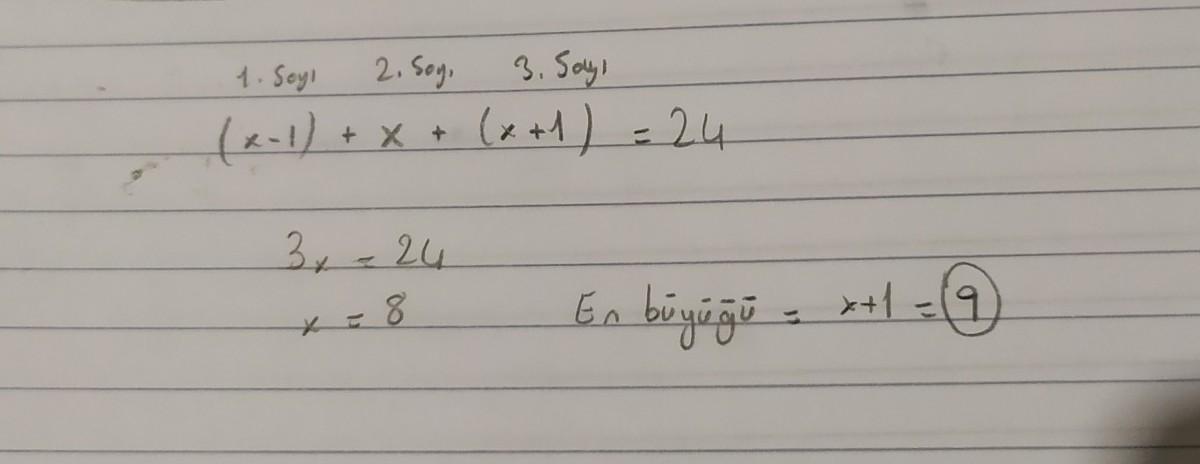 1. Sayı 2. Sayı 3. Sayı
(x-1) + x + (x+1) = 24
3x = 24
x = 8 En büyüğü = x+1 = 9